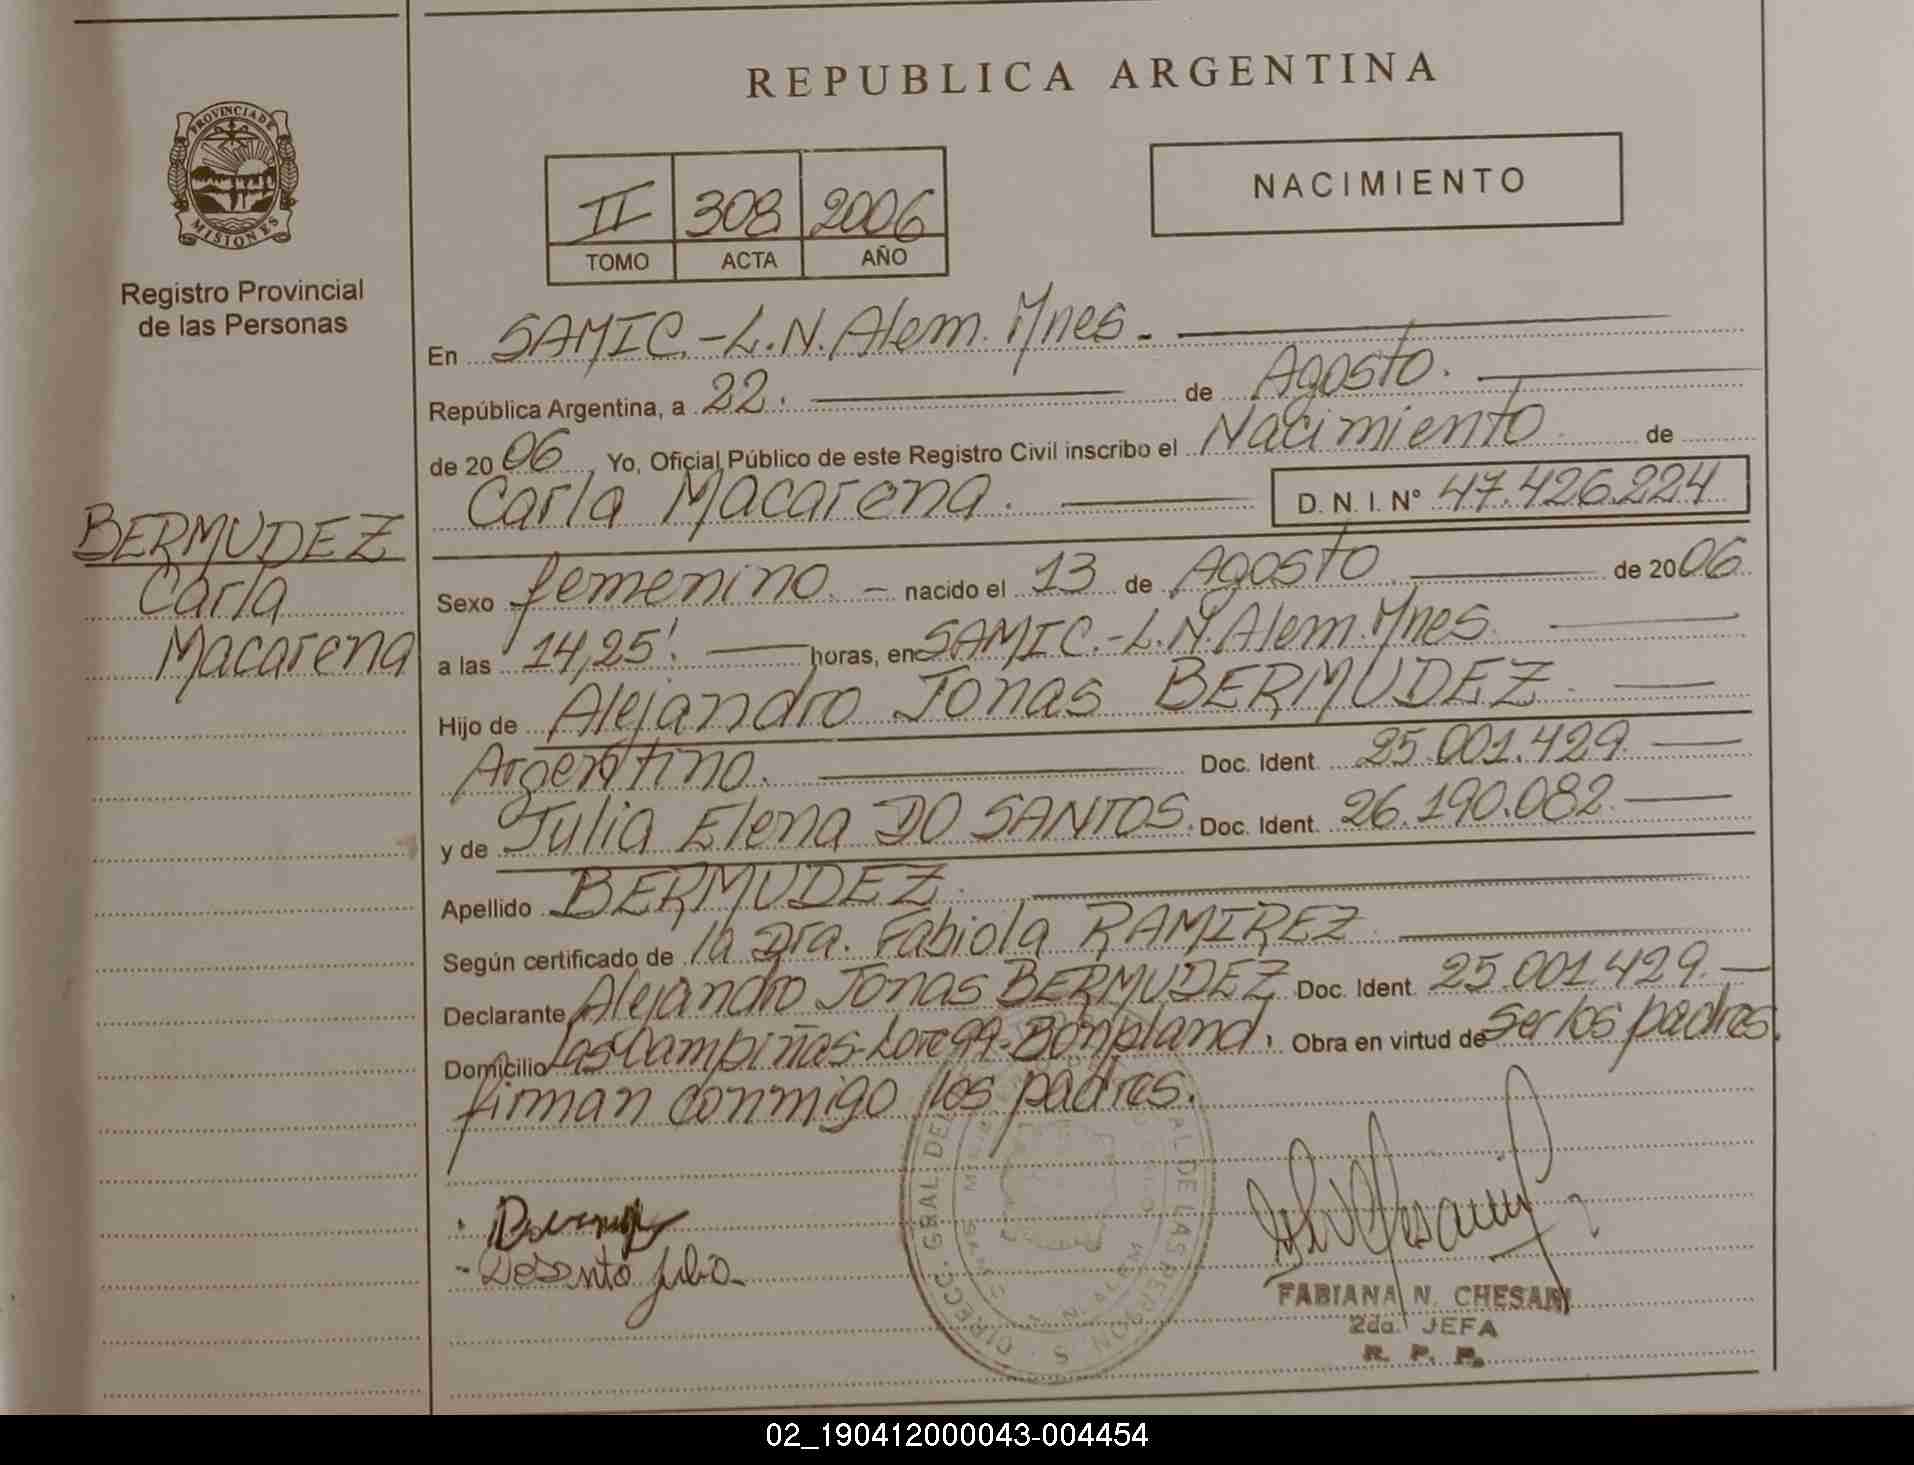 REPUBLICA ARGENTINA
PROVINCIA DE
MISIONES
Registro Provincial
de las Personas
II 308 2006
TOMO ACTA AÑO
NACIMIENTO
En SAMIC.-L.N.Alem.Mnes.-
República Argentina, a 22. de Agosto.
de 20 06 , Yo, Oficial Público de este Registro Civil inscribo el Nacimiento de
Carla Macarena. D. N. I. Nº 47.426.224
BERMUDEZ
Carla
Macarena
Sexo femenino. - nacido el 13 de Agosto de 20 06
a las 14,25'. horas, en SAMIC.-L.N.Alem.Mnes.
Hijo de Alejandro Jonas BERMUDEZ.
Argentino. Doc. Ident. 25.001.429.
y de Julia Elena DO SANTOS. Doc. Ident. 26.190.082.
Apellido BERMUDEZ.
Según certificado de la Dra. Fabiola RAMIREZ
Declarante Alejandro Jonas BERMUDEZ Doc. Ident. 25.001.429.
Domicilio Las Campiñas-Lote 99-Bonpland, Obra en virtud de ser los padres.
firman conmigo los padres.
DIRECC. GRAL DEL AL DE LAS PERSONAS
N. ALEM
FABIANA N. CHESANI
2da. JEFA
R. P. P.
02_190412000043-004454